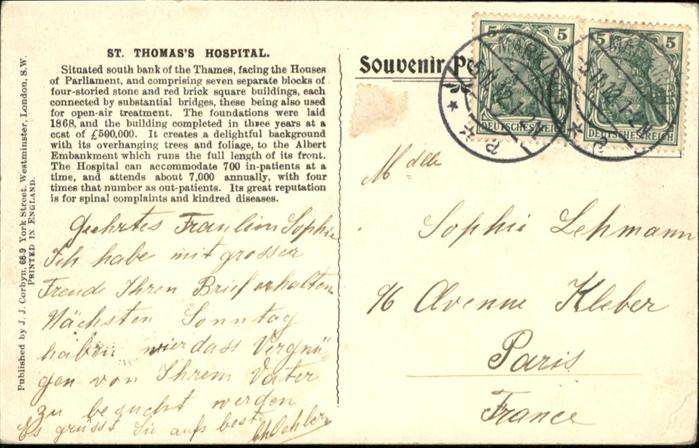 ST. THOMAS'S HOSPITAL.
Situated south bank of the Thames, facing the Houses
of Parliament, and comprising seven separate blocks of
four-storied stone and red brick square buildings, each
connected by substantial bridges, these being also used
for open-air treatment. The foundations were laid
1868, and the building completed in three years at a
cost of £500,000. It creates a delightful background
with its overhanging trees and foliage, to the Albert
Embankment which runs the full length of its front.
The Hospital can accommodate 700 in-patients at a
time, and attends about 7,000 annually, with four
times that number as out-patients. Its great reputation
is for spinal complaints and kindred diseases.
Geehrtes Fräulein Sophie
Ich habe mit grosser
Freude Ihren Brief erhalten
Nächsten Sonntag
haben wier dass Vergnü-
gen von Ihrem Vater
zu besucht werden
Es grüsst Sie aufs beste
Published by J. J. Corbyn, 68-9 York Street, Westminster, London, S.W.
PRINTED IN ENGLAND.
Souvenir
5 5
DEUTSCHES REICH
5 5
DEUTSCHES REICH
Mdelle
Sophie Lehmann
Avenue Kleber
Paris
France